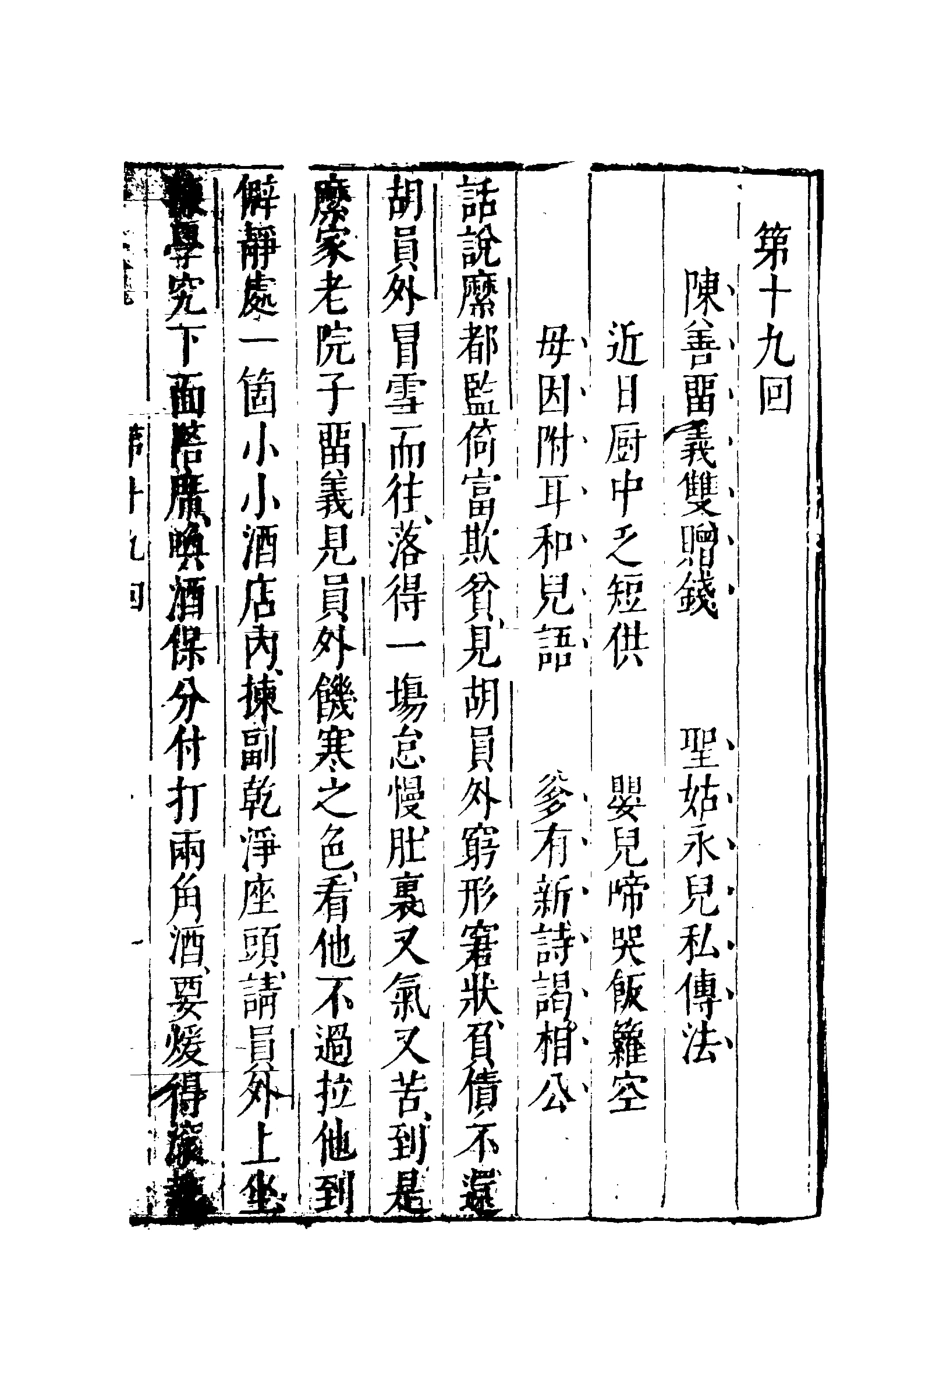 第十九回
陳善畱義雙贈錢　聖姑永兒私傳法
近日厨中乏短供　嬰兒啼哭飯籮空
母因附耳和兒語　爹有新詩謁相公
話說縻都監倚富欺貧、見胡員外窮形窘狀、負債不還
胡員外冒雪而往、落得一塲怠慢、肚裏又氣又苦、到是
縻家老院子畱義見員外饑寒之色、看他不過拉他到
僻靜處一箇小小酒店內、揀副乾淨座頭、請員外上坐
陳學究下面陪席、喚酒保分付打兩角酒、要煖得滾熱
第十九回
一